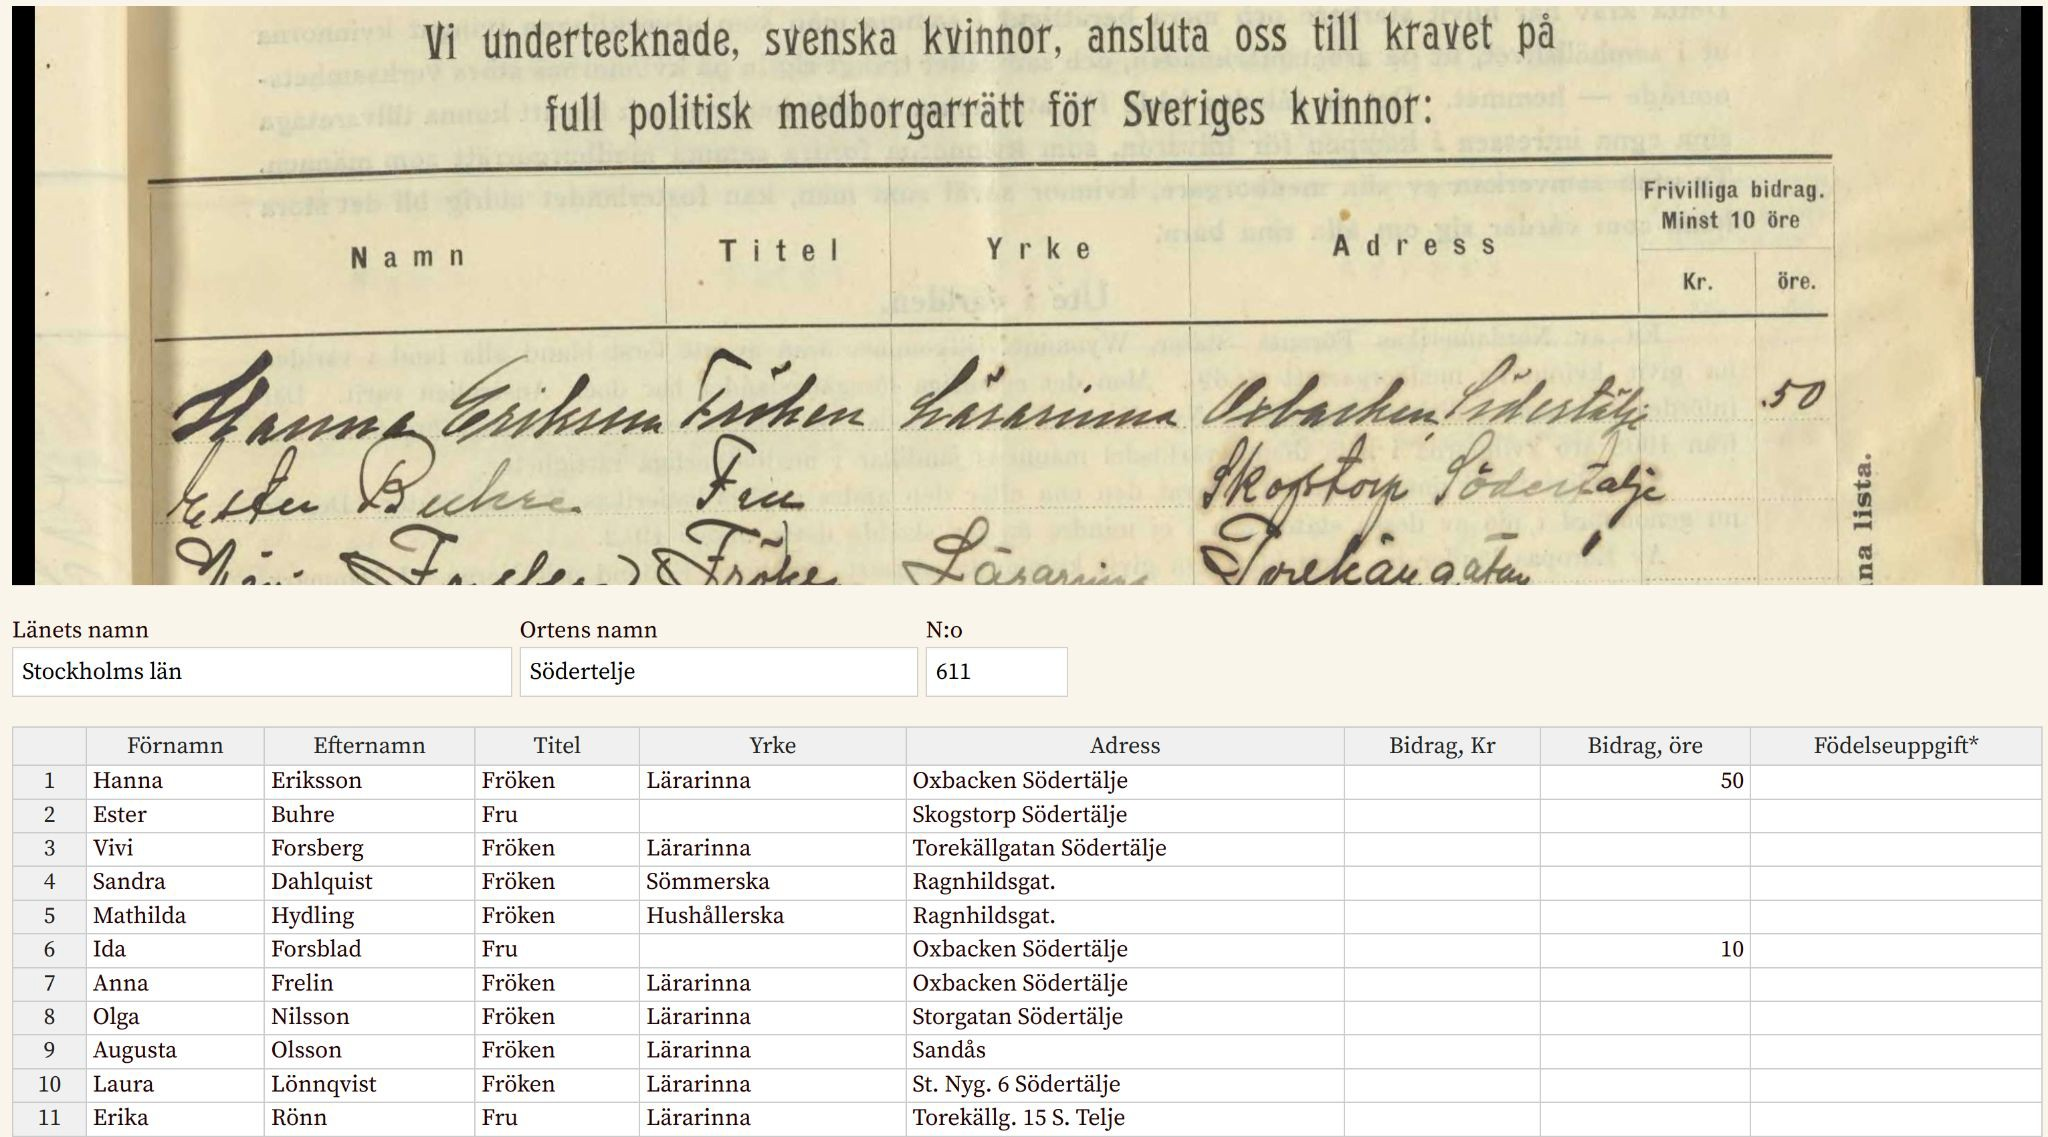 Vi undertecknade, svenska kvinnor, ansluta oss till kravet på
full politisk medborgarrätt för Sveriges kvinnor:
Namn Titel Yrke Adress Frivilliga bidrag. Minst 10 öre Kr. öre.
Hanna Eriksson Fröken Lärarinna Oxbacken, Södertälje .50
Ester Buhre Fru Skogstorp Södertälje
Fröken Lärarinna Torekällgatan
na lista.
Länets namn Ortens namn N:o
Stockholms län Södertelje 611
Förnamn Efternamn Titel Yrke Adress Bidrag, Kr Bidrag, öre Födelseuppgift*
1 Hanna Eriksson Fröken Lärarinna Oxbacken Södertälje 50
2 Ester Buhre Fru Skogstorp Södertälje
3 Vivi Forsberg Fröken Lärarinna Torekällgatan Södertälje
4 Sandra Dahlquist Fröken Sömmerska Ragnhildsgat.
5 Mathilda Hydling Fröken Hushållerska Ragnhildsgat.
6 Ida Forsblad Fru Oxbacken Södertälje 10
7 Anna Frelin Fröken Lärarinna Oxbacken Södertälje
8 Olga Nilsson Fröken Lärarinna Storgatan Södertälje
9 Augusta Olsson Fröken Lärarinna Sandås
10 Laura Lönnqvist Fröken Lärarinna St. Nyg. 6 Södertälje
11 Erika Rönn Fru Lärarinna Torekällg. 15 S. Telje